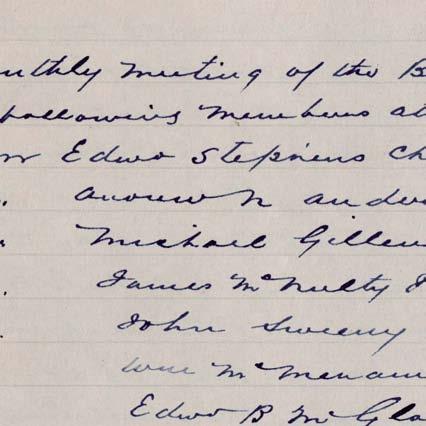 nthly Meeting of the B
following Members at
Mr Edwd Stephens Ch
" Andrew N Ande
" Michael Gille
James McNulty J
John Sweeny
Wm McMenam
Edwd B McGla